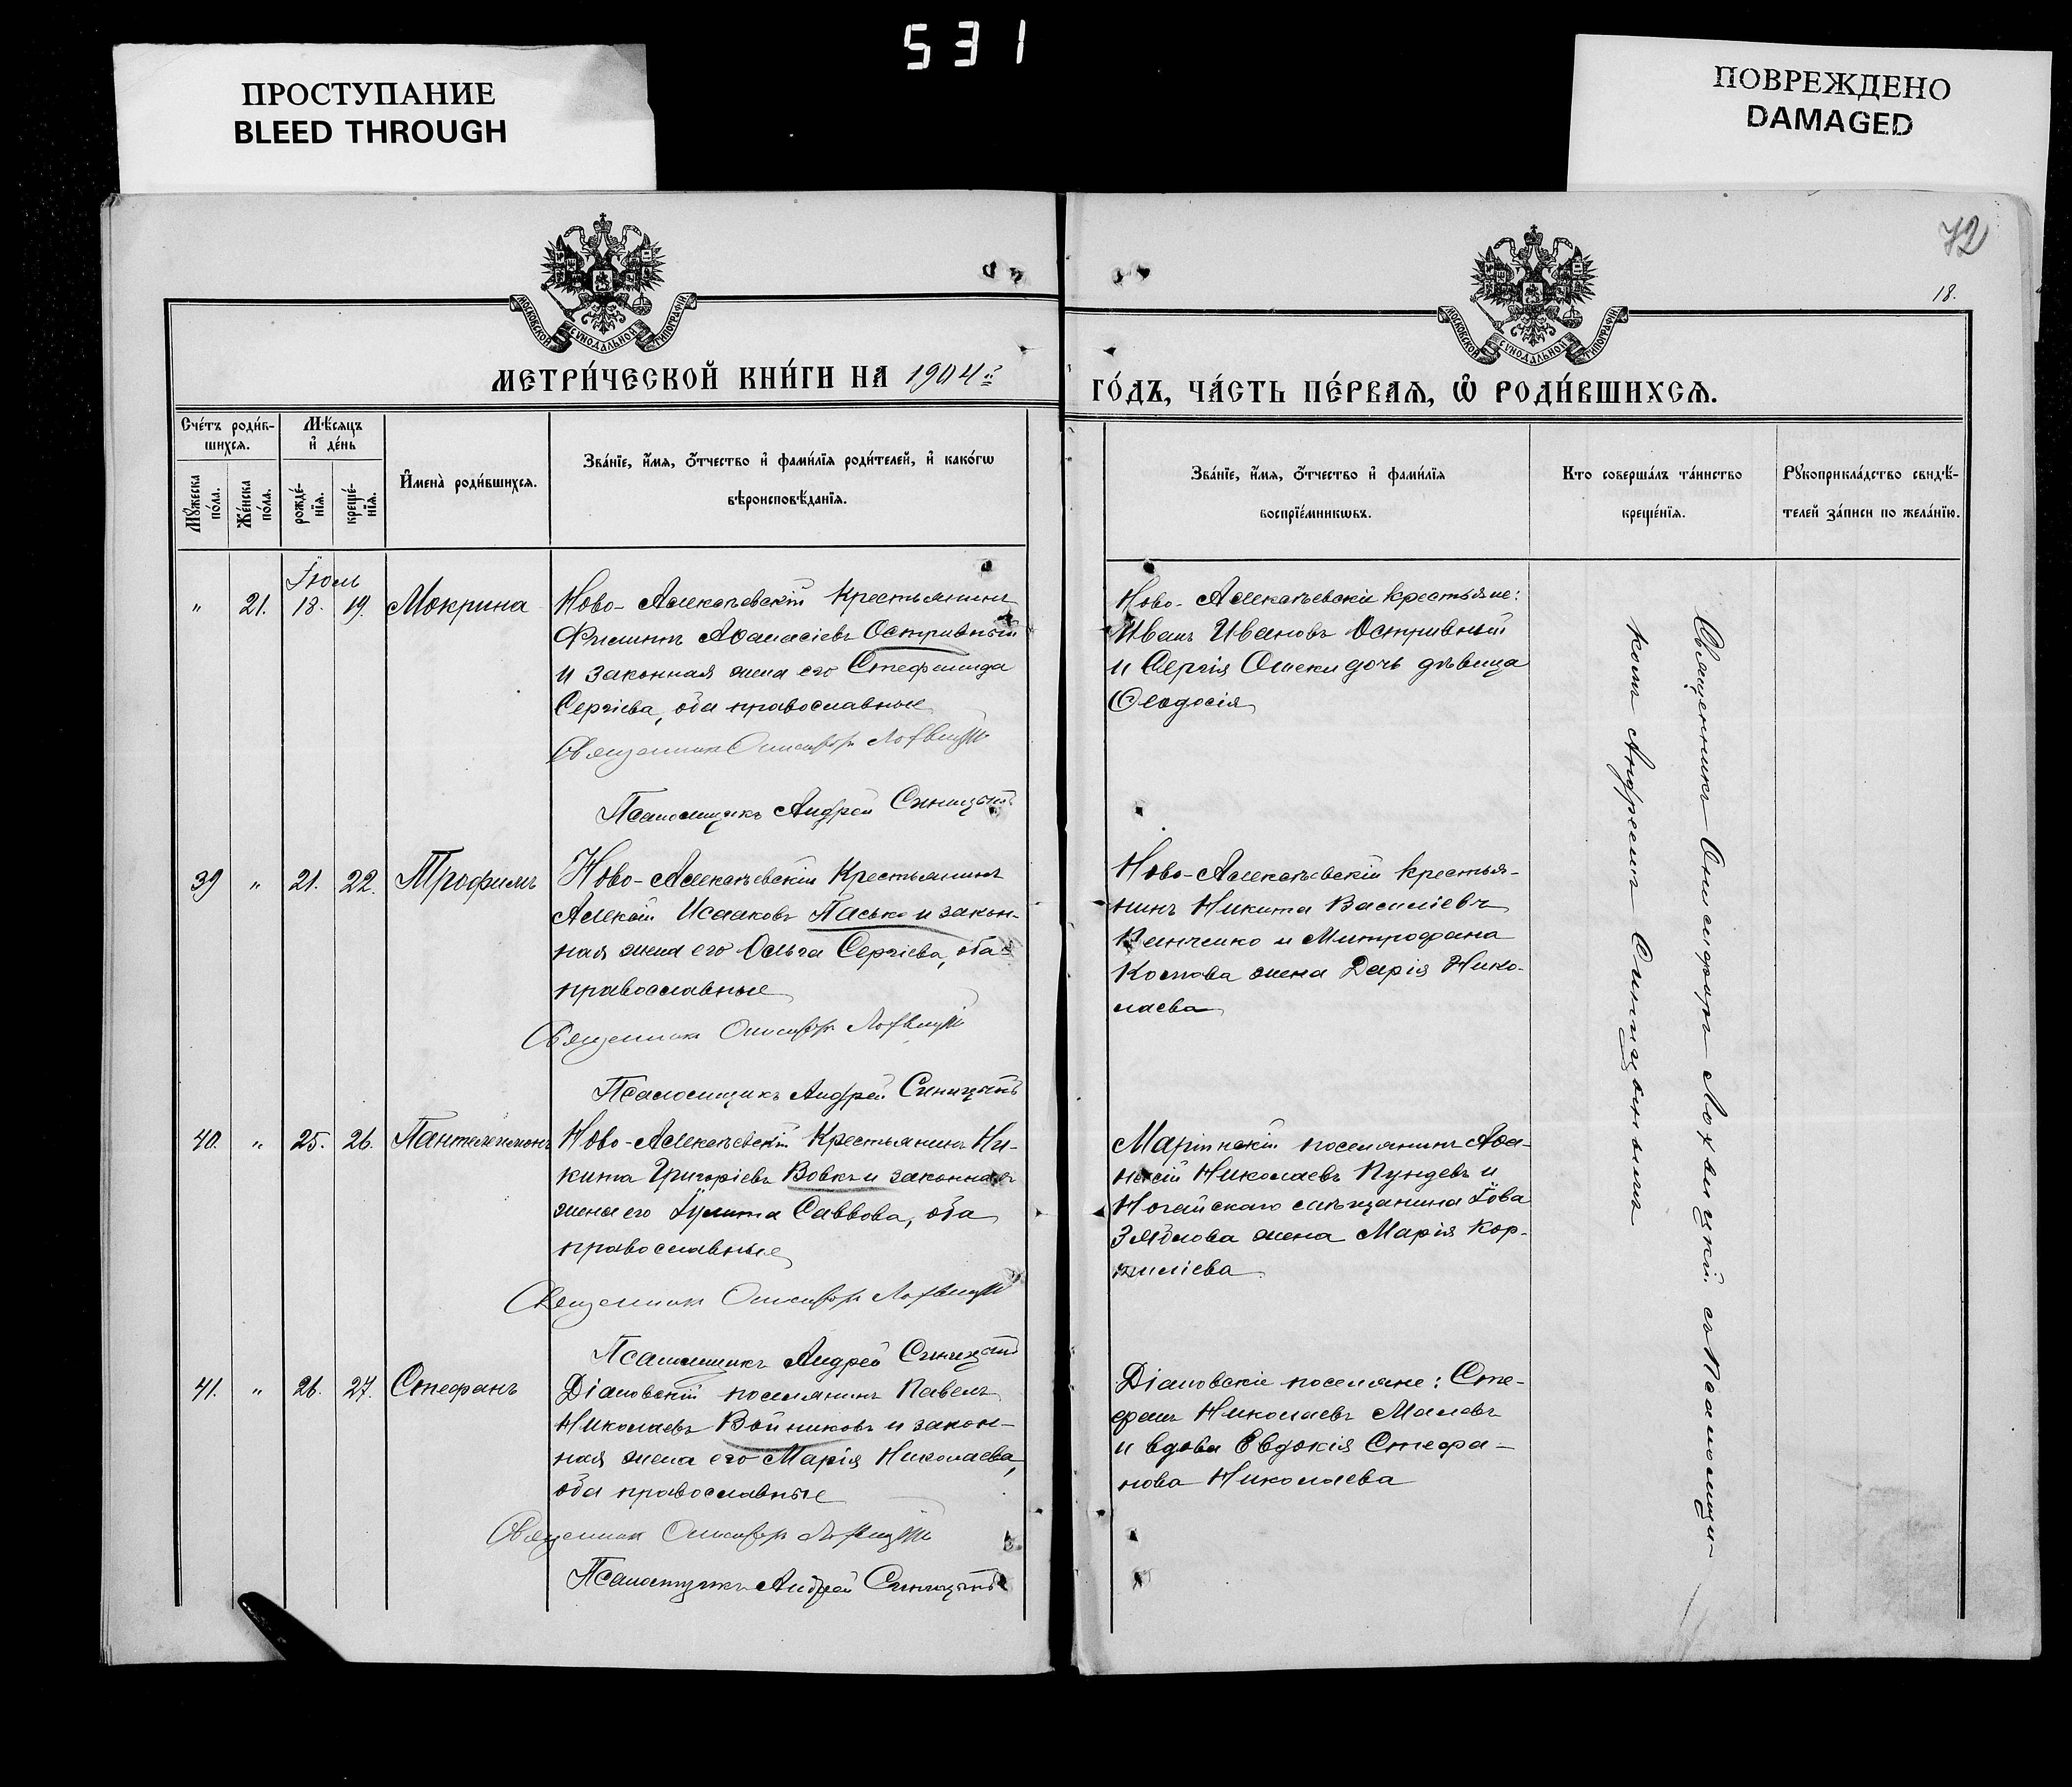 531
ПРОСТУПАНИЕ
BLEED THROUGH
ПОВРЕЖДЕНО
DAMAGED
72
18.
МОСКОВСКОЙ СУНОДАЛЬНОЙ ТИПОГРАФІИ
МОСКОВСКОЙ СУНОДАЛЬНОЙ ТИПОГРАФІИ
МЕТРИ́ЧЕСКОЙ КНИ́ГИ НА 1904й
ГО́ДЪ, ЧА́СТЬ ПЕ́РВАѦ, Ѽ РОДИ́ВШИХСѦ.
Сче́тъ роди́в-
шихсѧ.
Мꙋжеска по́ла.
Же́нска по́ла.
Мѣ́сѧцъ
и҆ де́нь
рожде́-
нїѧ.
креще́-
нїѧ.
И҆мена̀ роди́вшихсѧ.
Зва́нїе, и҆́мѧ, ѻ҆́тчество и҆ фами́лїѧ роди́телей, и҆ како́гѡ
вѣроисповѣ́данїѧ.
Зва́нїе, и҆́мѧ, ѻ҆́тчество и҆ фами́лїѧ
воспрїе́мникѡвъ.
Кто соверша́лъ та́инство
креще́нїѧ.
Рꙋкоприкла́дство свидѣ́-
телей за́писи по жела́нїю.
Іюль
" 21. 18. 19. Мокрина
Ново-Алексѣевскій крестьянинъ
Филиппъ Аѳанасіевъ Остривный
и законная жена его Стефанида
Сергіева, оба православные
Священникъ Онисифоръ Лохвицкій
Псаломщикъ Андрей Синицынъ
Ново-Алексѣевскіе крестьяне:
Иванъ Ивановъ Остривный
и Сергія дочь дѣвица
Ѳеодосія
39 " 21. 22. Трофимъ
Ново-Алексѣевскій крестьянинъ
Алексѣй Исааковъ Пасько и закон-
ная жена его Ольга Сергіева, оба
православные
Священникъ Онисифоръ Лохвицкій
Псаломщикъ Андрей Синицынъ
Ново-Алексѣевскій крестья-
нинъ Никита Василіевъ
и Митрофана
жена Дарія Нико-
лаева
40. " 25. 26. Пантелеимонъ
Ново-Алексѣевскій крестьянинъ Ни-
кита Григоріевъ Вовкъ и законная
жена его Іулитта Саввова, оба
православные
Священникъ Онисифоръ Лохвицкій
Псаломщикъ Андрей Синицынъ
Маріинскій поселянинъ Аѳа-
насій Николаевъ Пундевъ и
Ногайскаго мѣщанина Іова
жена Марія Кор-
ниліева
41. " 26. 27. Стефанъ
Діановскій поселянинъ Павелъ
Николаевъ Войниковъ и закон-
ная жена его Марія Николаева,
оба православные
Священникъ Онисифоръ Лохвицкій
Псаломщикъ Андрей Синицынъ
Діановскіе поселяне: Сте-
фанъ Николаевъ Малевъ
и вдова Евдокія Стефа-
нова Николаева
Священникъ Онисифоръ Лохвицкій съ Псаломщи-
комъ Андреемъ Синицынымъ